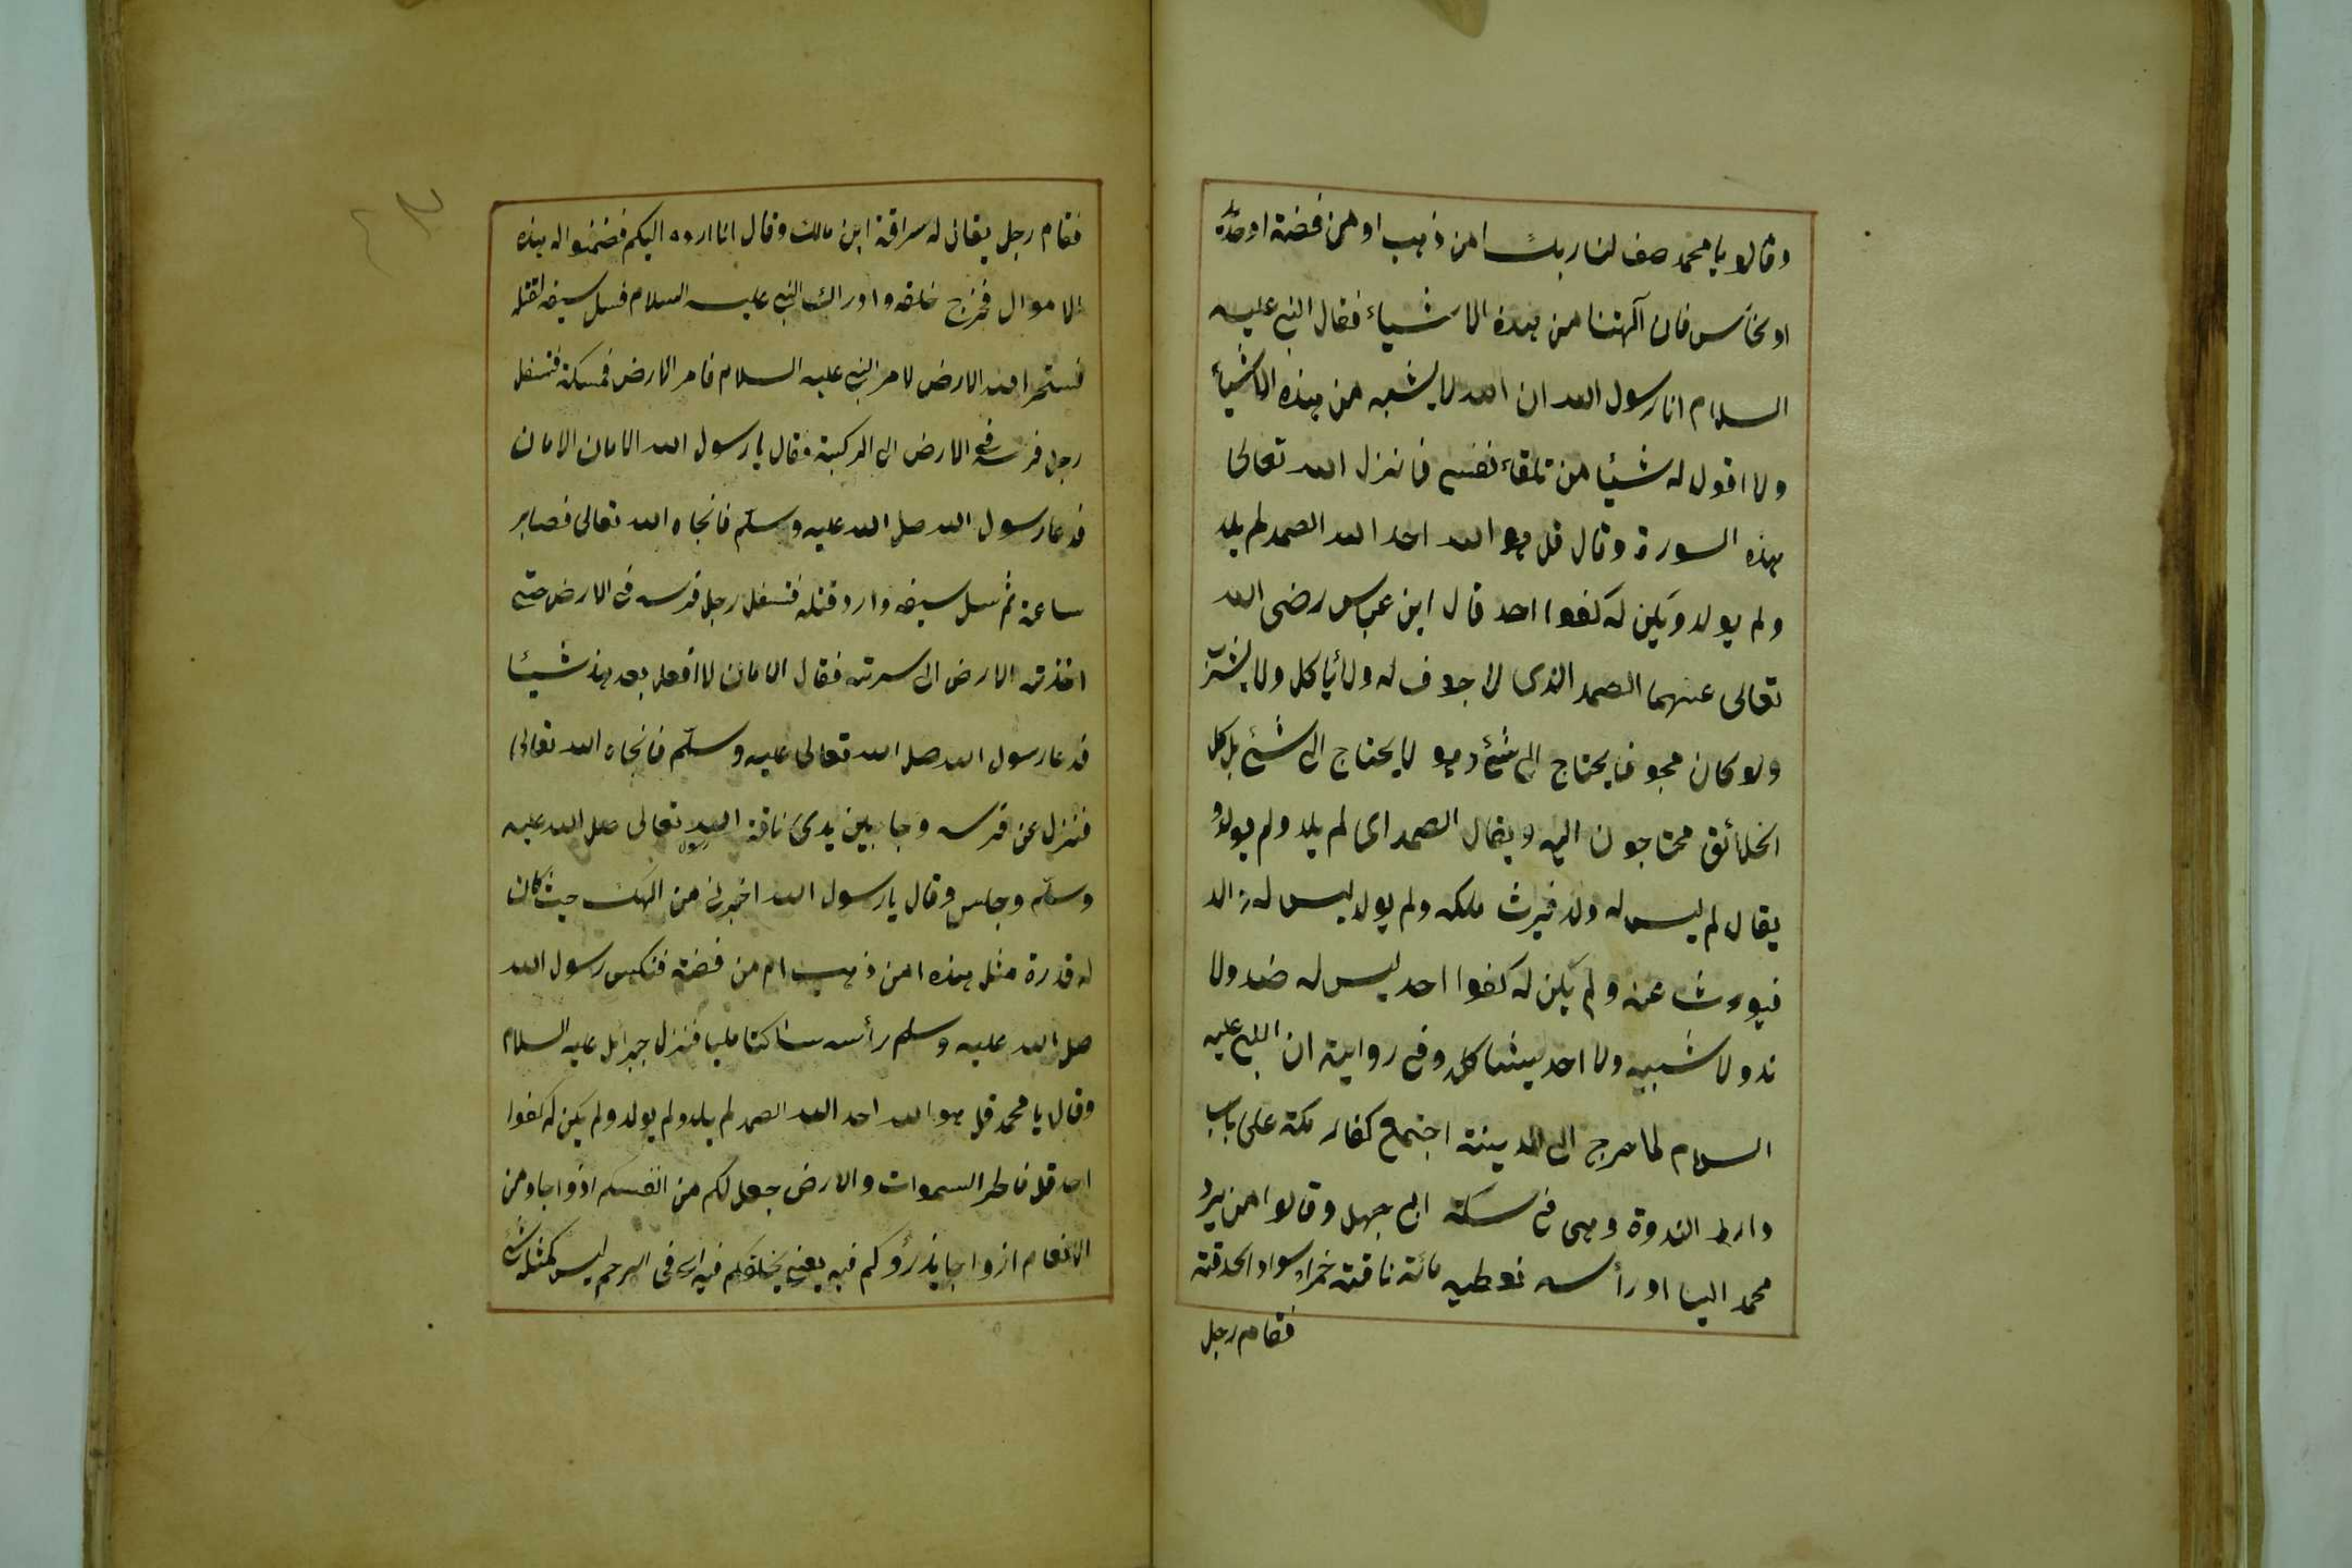 وقالو يا محمد صف لنا ربك امن ذهب او من فضة او حديد
او نحاس فان آلهتنا من هذه الاشياء فقال النبي عليه
السلام انا رسول الله ان الله لا يشبه من هذه الاشياء
ولا اقول له شيئا من تلقاء نفسي فانزل الله تعالى
هذه السورة وقال قل هو الله احد الله الصمد لم يلد
ولم يولد ويكن له كفوا احد قال ابن عباس رضى الله
تعالى عنهما الصمد الذى لا جوف له ولا يأكل ولا يشرب
ولو كان مجوفا يحتاج الى شئ وهو لا يحتاج الى شئ بل كل
الخلائق محتاجون اليه ويقال الصمد اى لم يلد ولم يولد و
يقال لم ليس له ولد فيرث ملكه ولم يولد ليس له والد
فيورث عنه ولم يكن له كفوا احد ليس له ضد ولا
ند ولا شبيه ولا احد يشاكل وفي رواية ان النبي عليه
السلام لما خرج الى المدينة اجتمع كفار مكة على باب
دار الندوة وهى في سكة ابى جهل وقالوا من يرد
محمد الينا او رأسه نعطيه مائة ناقة حمراء سواد الحدقة
فقام رجل
فقام رجل يقال له سراقة ابن مالك وقال انا ارده اليكم فضمنوا له هذه
الاموال فخرج خلفه وادرك النبي عليه السلام فسل سيفه لقتله
الارض لامر النبي عليه السلام فامر الارض فمسكة فتسفل
رجل فرسه في الارض الى الركبة فقال يا رسول الله الامان الامان
فدعا رسول الله صلى الله عليه وسلم فانجاه الله تعالى فصابر
ساعة ثم سل سيفه وارد قتله فتسفل رجل فرسه فى الارض حتى
اخذته الارض الى سرته فقال الامان لا افعل بعد هذ شيئا
فدعا رسول الله صلى الله تعالى عليه وسلم فانجاه الله تعالى
فنزل عن فرسه وجا بين يدى ناقة رسول الله تعالى صلى الله عليه
وسلم وجلس وقال يا رسول الله اخبرنى من الهك حيث كان
له قدرة مثل هذه امن ذهب ام من فضة فنكس رسول الله
صلى الله عليه وسلم رأسه ساكتا مليا فنزل جبرائل عليه السلام
وقال يا محمد قل هو الله احد الله الصمد لم يلد ولم يولد ولم يكن له كفوا
احد قل فاطر السموات والارض جعل لكم من انفسكم ازواجا ومن
الانعام ازواجا يذرؤكم فيه يعنى يخلقكم فيه اى فى الرحم ليس كمثله شئ